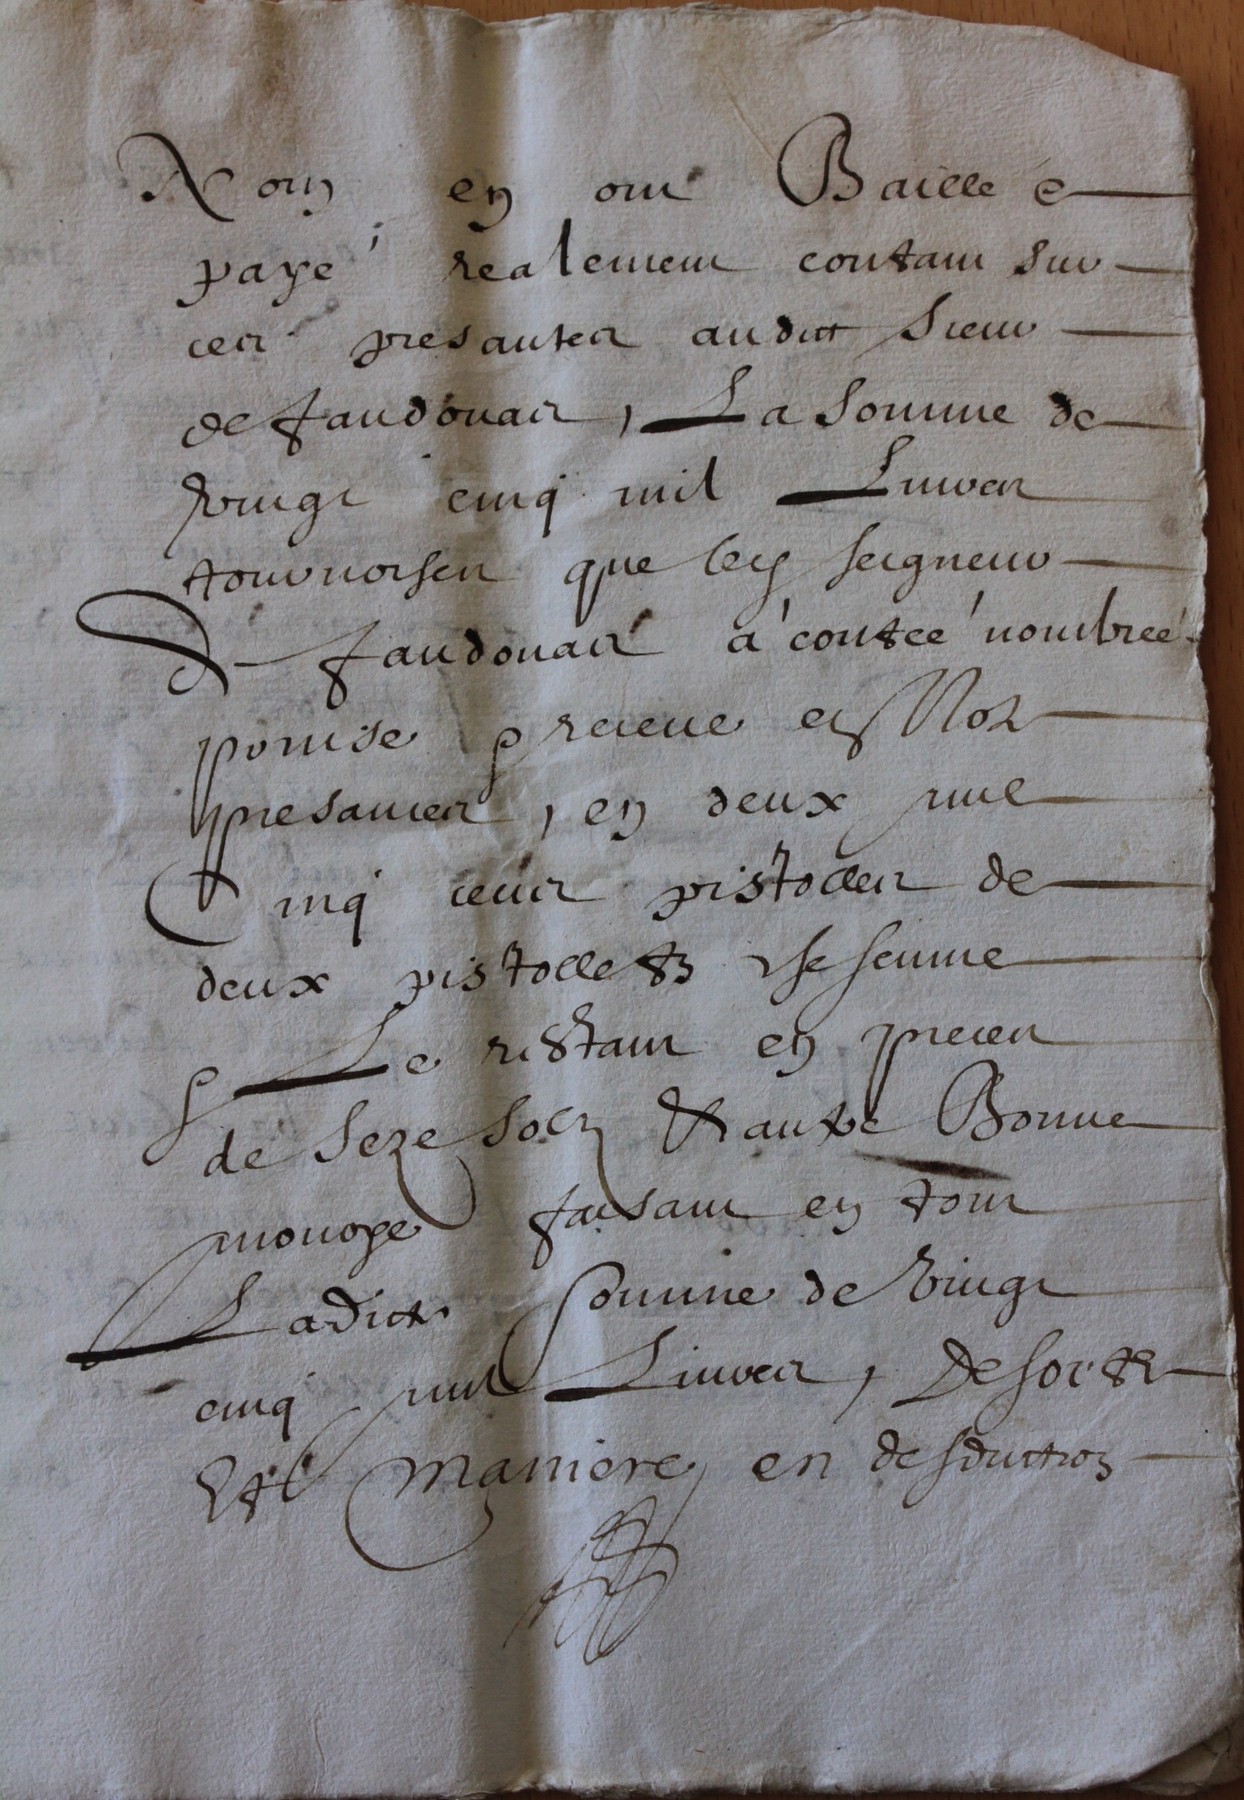 Nom en ont Baillé e
payé realement contant sur
ces presantes audict Sieur
de faudouas, La Somme de
vingt cinq mil Livres
tournoises que led seigneur
De faudouas a contée nombrée
prinse e receue en Noz
presances, en deux mil
Cinq cens pistolles de
deux pistolletz
e Le restant en pieces
de Seze Solz Et autre Bonne
monoye faisant en tout
Ladicte Somme de vingt
cinq mil Livres, De sorte
Et Maniere en desduction